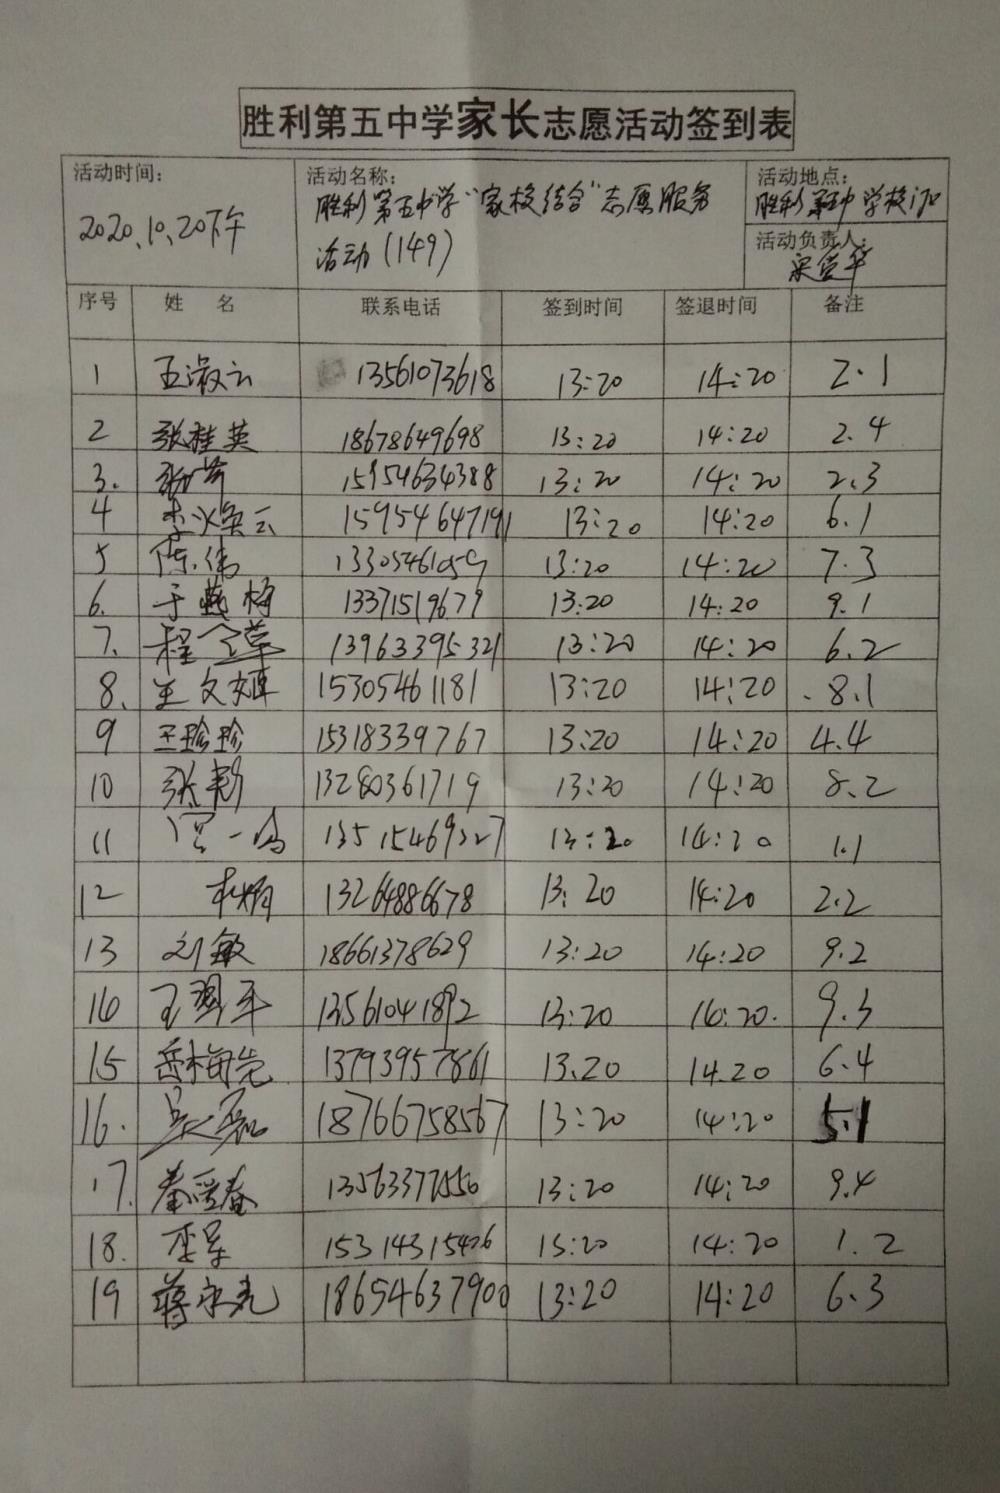 胜利第五中学家长志愿活动签到表
活动时间: 活动名称: 活动地点:
2020.10.20下午 胜利第五中学“家校结合”志愿服务 胜利第五中学校门口
活动(149) 活动负责人:
序号 姓 名 联系电话 签到时间 签退时间 备注
1 王淑云 13561073618 13:20 14:20 2.1
2 张桂英 18678649698 13:20 14:20 2.4
3. 15954634388 13:20 14:20 2.3
4 李焕云 15954647191 13:20 14:20 6.1
5 陈伟 13305461059 13:20 14:20 7.3
6. 于燕梅 13371519679 13:20 14:20 9.1
7. 程 13963395321 13:20 14:20 6.2
8. 15305461181 13:20 14:20 8.1
9 王珍珍 15318339767 13:20 14:20 4.4
10 张彬 13280361719 13:20 14:20 8.2
11 13515469327 13:20 14:20 1.1
12 杜娟 13264886678 13:20 14:20 2.2
13 刘敏 18661378629 13:20 14:20 9.2
14 王翠平 13561041892 13:20 14:20. 9.3
15 岳梅先 13793957861 13.20 14.20 6.4
16. 吴磊 18766758567 13:20 14:20 5.1
17. 秦爱春 13:20 14:20 9.4
18. 李军 13:20 14:20 1.2
19 蒋永亮 18654637900 13:20 14:20 6.3